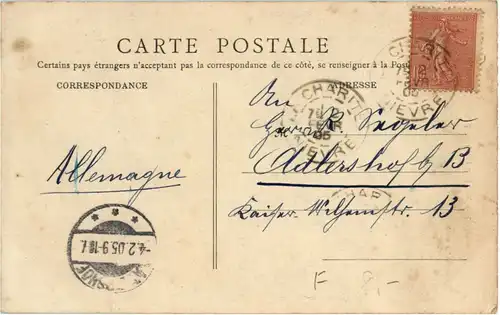 CARTE POSTALE
Certains pays étrangers n'acceptant pas la correspondance de ce côté, se renseigner à la Poste
CORRESPONDANCE
ADRESSE
An
Segeler
Adlershof b/B
Kaiser Wilhelmstr. 13
Allemagne
4.2.05.9-10
F 9,-